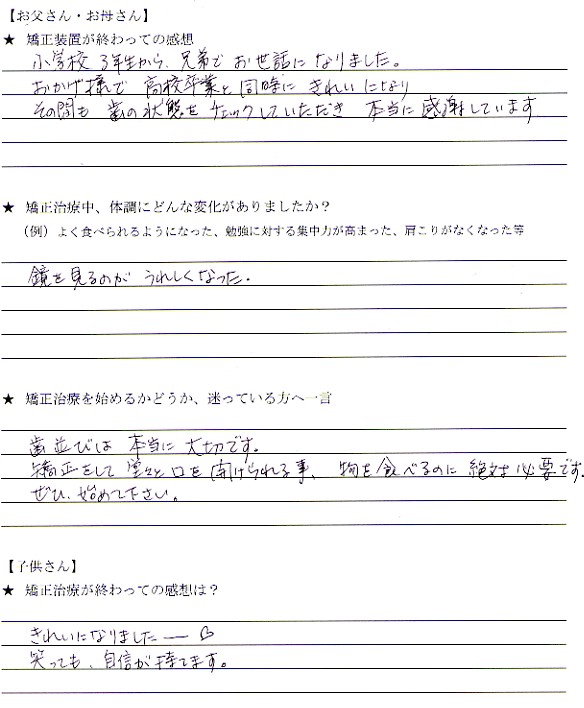 【お父さん・お母さん】
★ 矯正装置が終わっての感想
小学校3年生から、兄弟でお世話になりました。
おかげ様で 高校卒業と同時に きれいになり
その間も 歯の状態をチェックしていただき 本当に感謝しています
★ 矯正治療中、体調にどんな変化がありましたか？
（例）よく食べられるようになった、勉強に対する集中力が高まった、肩こりがなくなった等
鏡を見るのが うれしくなった.
★ 矯正治療を始めるかどうか、迷っている方へ一言
歯並びは 本当に 大切です。
矯正をして 堂々と口を開けられる事、物を食べるのに 絶対必要です。
ぜひ、始めて下さい。
【子供さん】
★ 矯正治療が終わっての感想は？
きれいになりましたー♡
笑っても、自信が持てます。